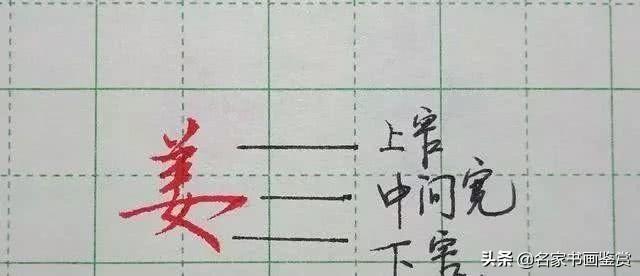 姜
上窄
中间宽
下窄
头条 @名家书画鉴赏